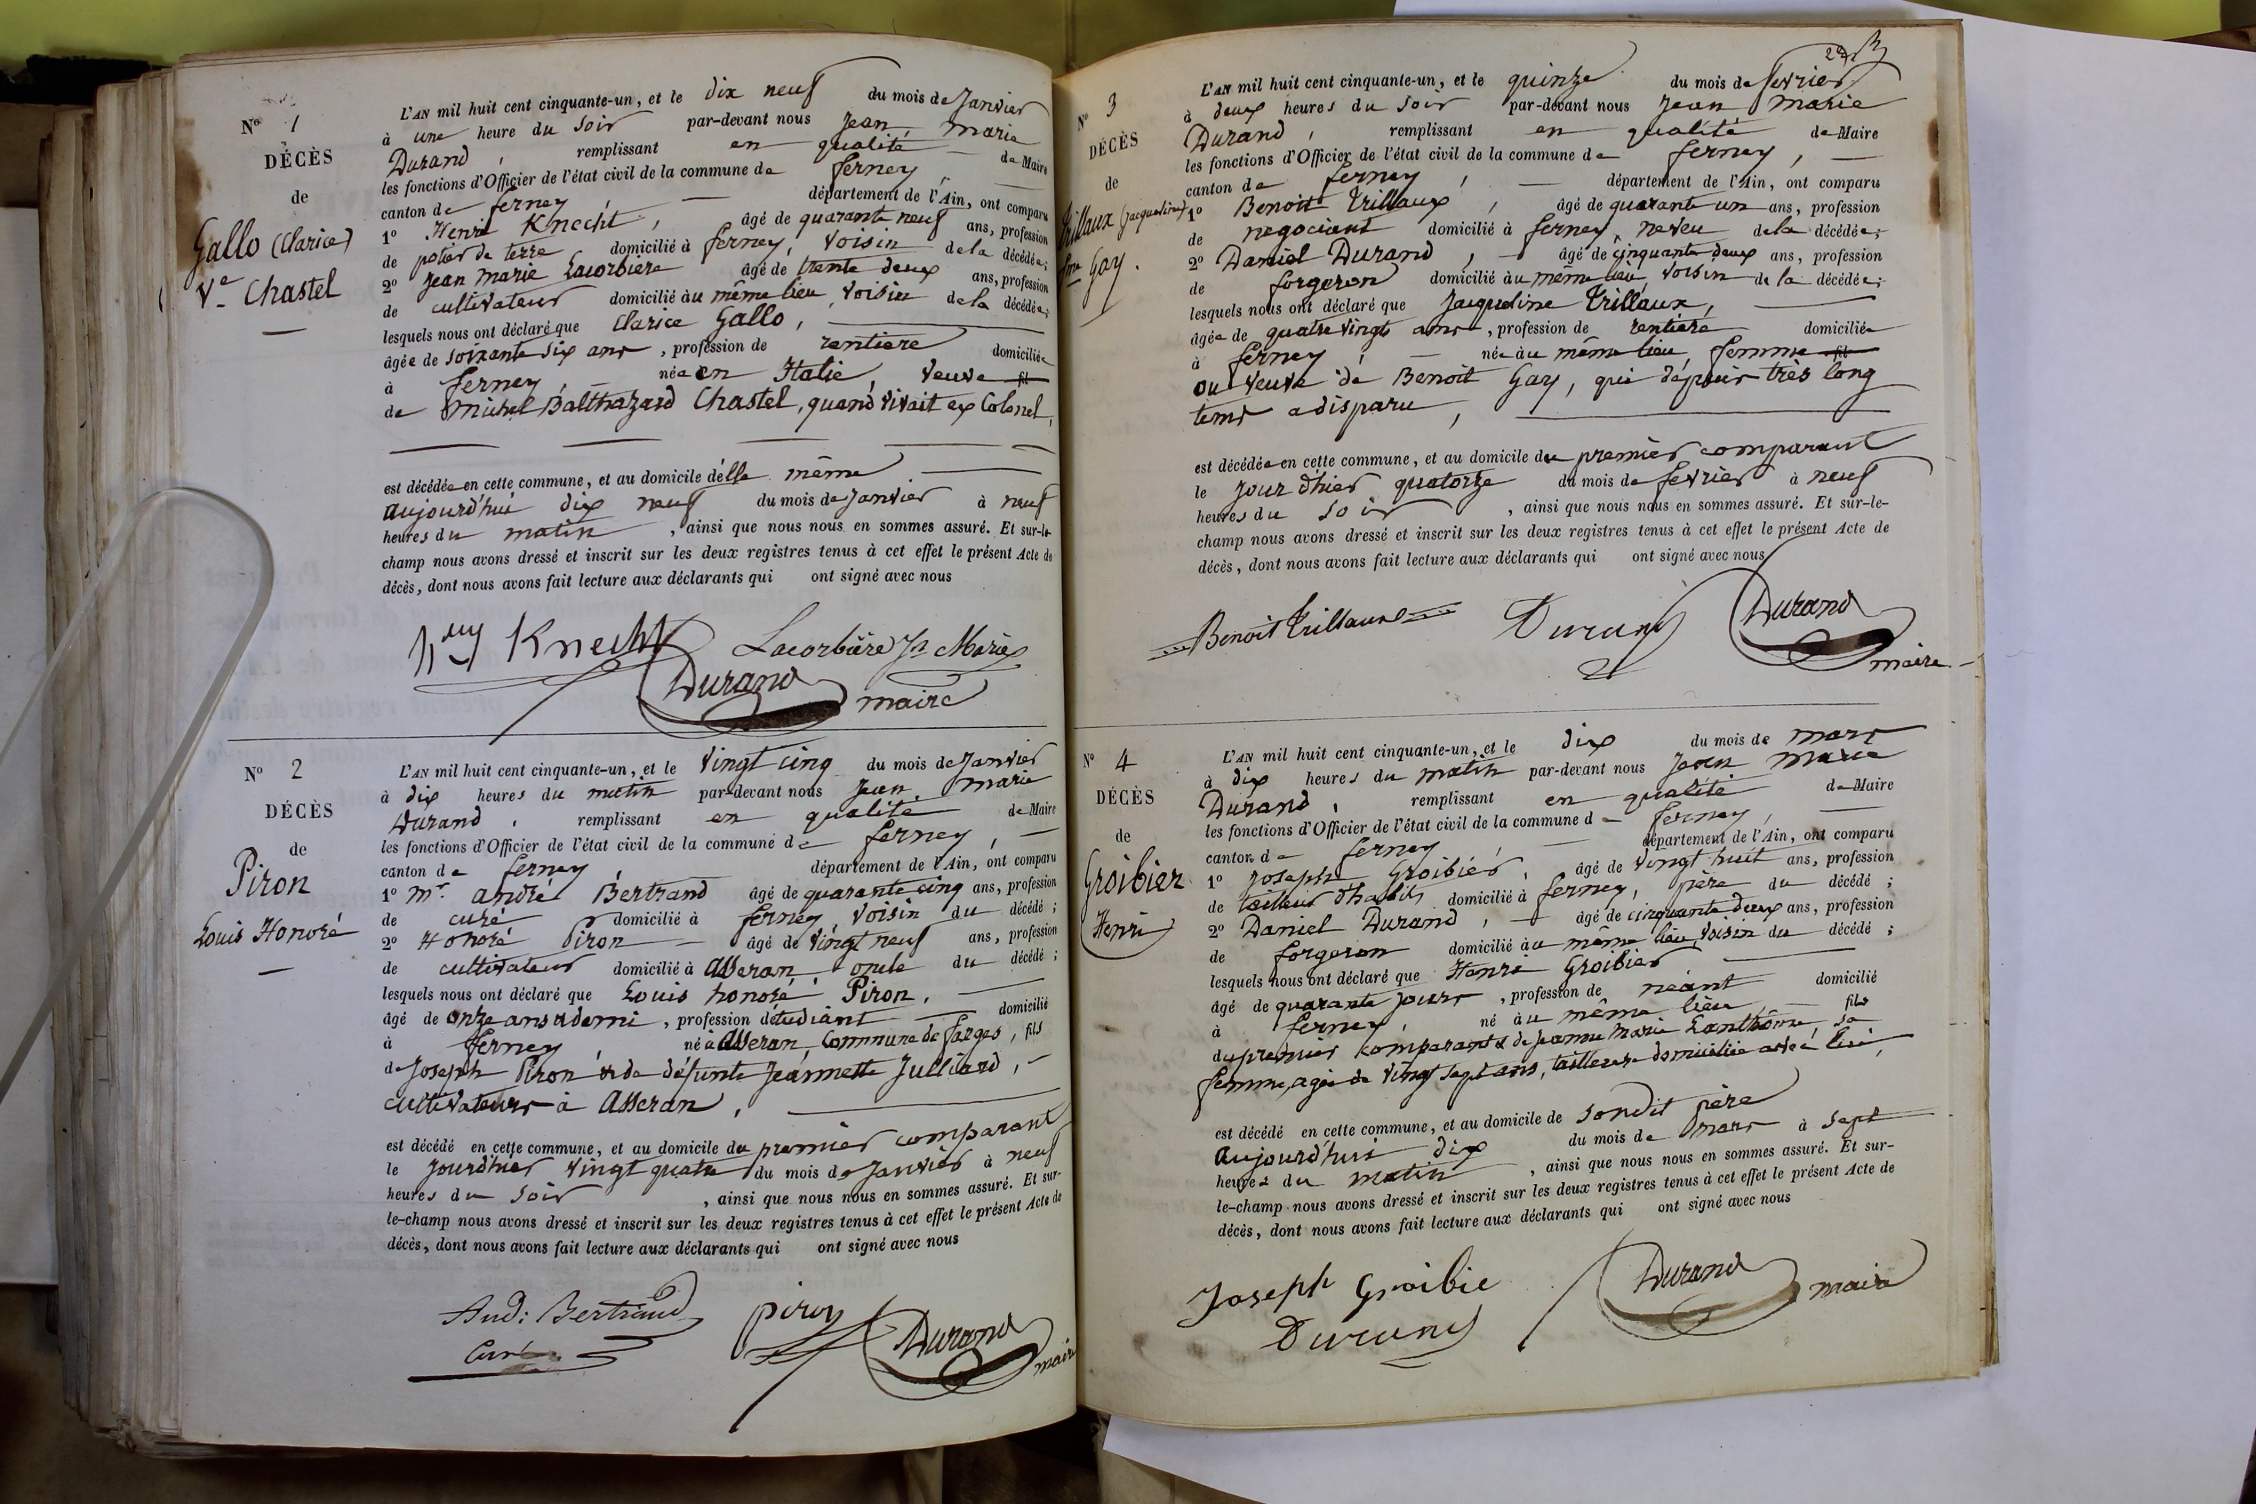 N° 1
DÉCÈS
de
Gallo (Clarice)
Ve Chastel
L'AN mil huit cent cinquante-un, et le dix neuf du mois de Janvier
à une heure du soir par-devant nous Jean Marie
Durand, remplissant en qualité de Maire
les fonctions d'Officier de l'état civil de la commune de ferney,
canton de ferney, département de l'Ain, ont comparu
1° Henri Knecht, âgé de quarante neuf ans, profession
de potier de terre domicilié à ferney, voisin de la décédée;
2° Jean Marie Lacorbière âgé de trente deux ans, profession
de cultivateur domicilié àu même lieu, voisin de la décédée;
lesquels nous ont déclaré que Clarice Gallo,
âgée de soixante six ans, profession de rentiere domiciliée
à ferney née en Italie, veuve fil
de Michel Balthazard Chastel, quand vivait ex Colonel,
est décédée en cette commune, et au domicile d'elle même
aujourd'hui dix neuf du mois de Janvier à neuf
heures du matin, ainsi que nous nous en sommes assuré. Et sur-le-
champ nous avons dressé et inscrit sur les deux registres tenus à cet effet le présent Acte de
décès, dont nous avons fait lecture aux déclarants qui ont signé avec nous
hry Knecht Lacorbière Jn Marie
Durand maire
N° 2
DÉCÈS
de
Piron
Louis Honoré
L'AN mil huit cent cinquante-un, et le vingt cinq du mois de Janvier
à dix heures du matin par-devant nous Jean Marie
Durand, remplissant en qualité de Maire
les fonctions d'Officier de l'état civil de la commune de ferney,
canton de ferney, département de l'Ain, ont comparu
1° Mr. André Bertrand âgé de quarante cinq ans, profession
de curé domicilié à ferney, voisin du décédé;
2° Honoré Piron âgé de vingt neuf ans, profession
de cultivateur domicilié à Asseran, oncle du décédé;
lesquels nous ont déclaré que Louis honoré Piron,
âgé de onze ans & demi, profession d'étudiant domicilié
à ferney né à Asseran, Commune de farges, fils
de Joseph Piron & de défunte Jeannette Julliard,
cultivateurs à Asseran,
est décédé en cette commune, et au domicile du premier comparant
le jour d'hier vingt quatre du mois de Janvier à neuf
heures du soir, ainsi que nous nous en sommes assuré. Et sur-
le-champ nous avons dressé et inscrit sur les deux registres tenus à cet effet le présent Acte de
décès, dont nous avons fait lecture aux déclarants qui ont signé avec nous
And: Bertrand piron Durand
Curé maire
N° 3
DÉCÈS
de
Trillaux (Jacqueline)
fme Gay.
L'AN mil huit cent cinquante-un, et le quinze du mois de fevrier
à deux heures du soir par-devant nous Jean Marie
Durand, remplissant en qualité de Maire
les fonctions d'Officier de l'état civil de la commune de ferney,
canton de ferney, département de l'Ain, ont comparu
1° Benoit Trillaux, âgé de quarante un ans, profession
de negociant domicilié à ferney, neveu de la décédée;
2° Daniel Durand, âgé de cinquante deux ans, profession
de forgeron domicilié àu même lieu, voisin de la décédée;
lesquels nous ont déclaré que Jacqueline Trillaux,
âgée de quatre vingt ans, profession de rentière domiciliée
à ferney, née àu même lieu, femme fil
ou veuve de Benoit Gay, qui depuis très long
tems a disparu,
est décédée en cette commune, et au domicile du premier comparant
le jour d'hier quatorze du mois de fevrier à neuf
heures du soir, ainsi que nous nous en sommes assuré. Et sur-le-
champ nous avons dressé et inscrit sur les deux registres tenus à cet effet le présent Acte de
décès, dont nous avons fait lecture aux déclarants qui ont signé avec nous
Benoit Trillaux Durand Durand
maire
N° 4
DÉCÈS
de
Groibier
Henri
L'AN mil huit cent cinquante-un, et le dix du mois de mars
à dix heures du matin par-devant nous Jean Marie
Durand, remplissant en qualité de Maire
les fonctions d'Officier de l'état civil de la commune de ferney,
canton de ferney département de l'Ain, ont comparu
1° Joseph Groibier, âgé de vingt huit ans, profession
de tailleur d'habits domicilié à ferney, père du décédé;
2° Daniel Durand, âgé de cinquante deux ans, profession
de forgeron domicilié àu même lieu, voisin du décédé;
lesquels nous ont déclaré que Henri Groibier
âgé de quarante jours, profession de néant domicilié
à ferney, né àu même lieu fils
du premier comparant & de Jeanne Marie Lanthôme, sa
femme, agée de vingt sept ans, tailleuse domiciliée avec lui,
est décédé en cette commune, et au domicile de sondit père
aujourd'hui dix du mois de mars à sept
heures du matin, ainsi que nous nous en sommes assuré. Et sur-
le-champ nous avons dressé et inscrit sur les deux registres tenus à cet effet le présent Acte de
décès, dont nous avons fait lecture aux déclarants qui ont signé avec nous
Joseph Groibie Durand maire
Durand